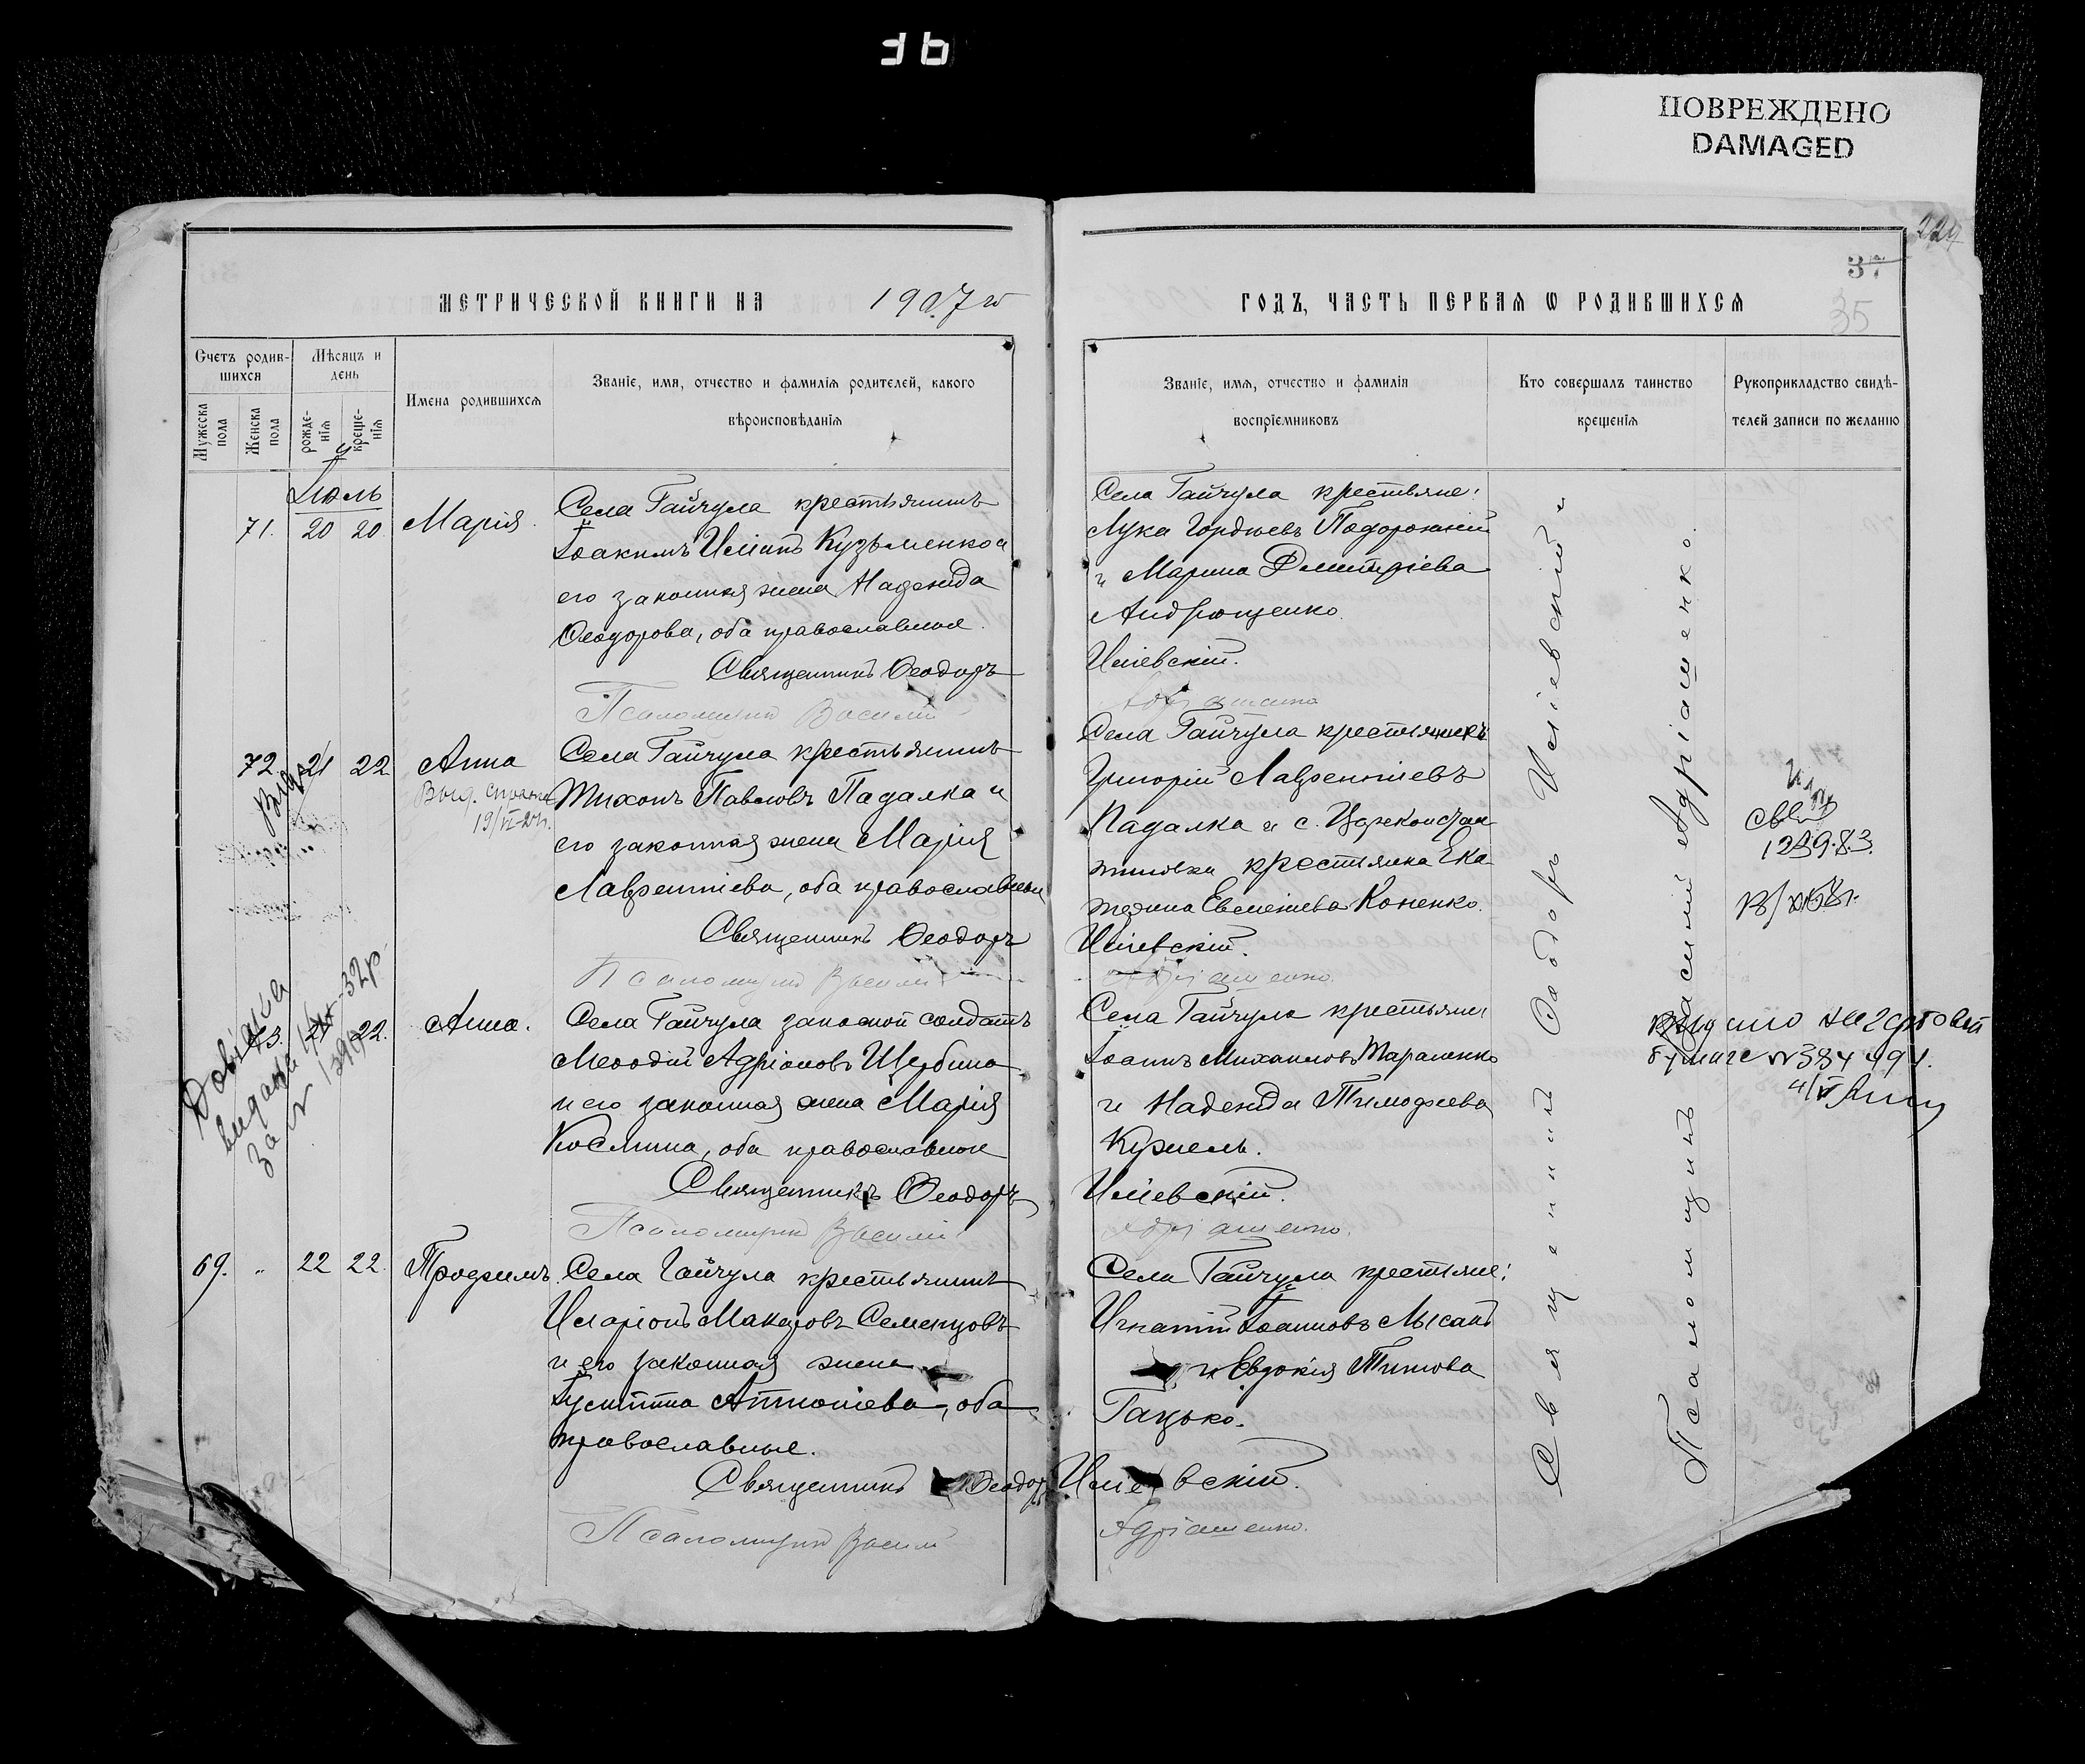 ПОВРЕЖДЕНО
DAMAGED
37
35
МЕТРИЧЕСКОЙ КНИГИ НА 1907 го
ГОДЪ, ЧАСТЬ ПЕРВАЯ Ѡ РОДИВШИХСЯ
Счетъ родив-
шихся
Мужеска пола
Женска пола
Мѣсяцъ и
день
рожде-
нія
креще-
нія
Имена родившихся
Званіе, имя, отчество и фамилія родителей, какого
вѣроисповѣданія
Званіе, имя, отчество и фамилія
воспріемниковъ
Кто совершалъ таинство
крещенія
Рукоприкладство свидѣ-
телей записи по желанію
Іюль
71. 20 20 Марія.
Села Гайчула крестьянинъ
Іоакимъ Кузьменко и
его законная жена Надежда
Ѳеодорова, оба православные.
Священникъ Ѳеодоръ
Псаломщикъ Василій
Села Гайчула крестьяне:
Лука Гордѣевъ Подорожній
и Марина Димитріева
Андрющенко.
Иліевскій.
Адріашенко
72. 21 22 Анна
Выд. справка
Села Гайчула крестьянинъ
Тихонъ Павловъ Падалка и
его законная жена Марія
Лаврентіева, оба православные
Священникъ Ѳеодоръ
Псаломщикъ Василій
Села Гайчула крестьянинъ
Григорій Лаврентіевъ
Падалка и с. Цареконстан
тиновки крестьянка Ека
терина Коненко.
Иліевскій.
Адріашенко.
73. 21 22. Анна.
Довідка
видана
за №
Села Гайчула запасной солдатъ
Меѳодій Адріановъ Щербина
и его законная жена Марія
Косміна, оба православные
Священникъ Ѳеодоръ
Псаломщикъ Василій
Села Гайчула крестьяне
Іоаннъ Михаиловъ Тараненко
и Надежда Тимофеева
Кужель.
Иліевскій.
Адріашенко.
69. „ 22 22 Трофимъ.
Села Гайчула крестьянинъ
Иларіонъ Макаровъ Семенцовъ
и его законная жена
Іустина Антоніева, оба
православные.
Священникъ Ѳеодоръ
Псаломщикъ Василій
Села Гайчула крестьяне:
Игнатій Іоанновъ Лысакъ
и Евдокія Титова
Гацько.
Иліевскій.
Адріашенко.
Священникъ Ѳеодоръ Иліевскій
Псаломщикъ Василій Адріашенко.